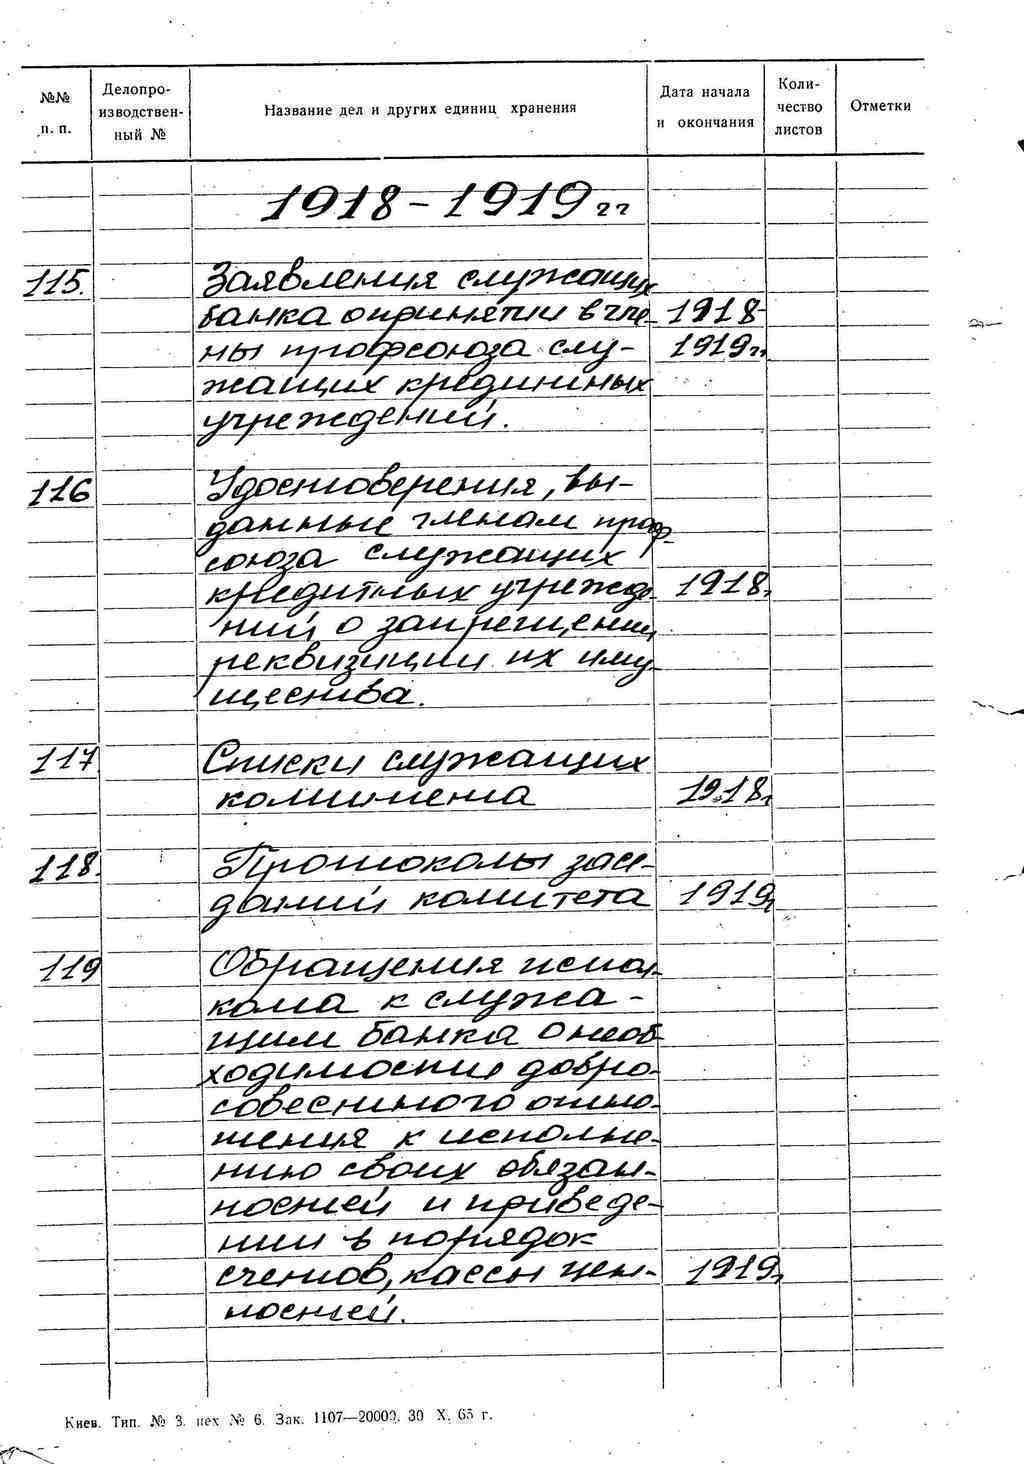 №№ п. п.
Делопро-
изводствен-
ный №
Название дел и других единиц хранения
Дата начала
и окончания
Коли-
чество
листов
Отметки
1918-1919 гг
115.
Заявления служащих
банка о принятии в чле-
1918-
ны профсоюза слу-
1919 гг
жащих кредитных
учреждений.
116
Удостоверения, вы-
данные членам проф-
союза служащих
кредитных учрежде-
1918г
ний о запрещении
реквизиции их иму
щества.
117
Списки служащих
комитета
1918г
118.
Протоколы засе-
даний комитета
1919г
119
Обращения испол-
кома к служа-
щим банка о необ
ходимости добро-
совестного отно-
шения к исполне-
нию своих обязан-
ностей и приведе-
нии в порядок
счетов, кассы цен-
1919г
ностей.
Киев. Тип. № 3. цех № 6. Зак. 1107—20000. 30 X. 65 г.